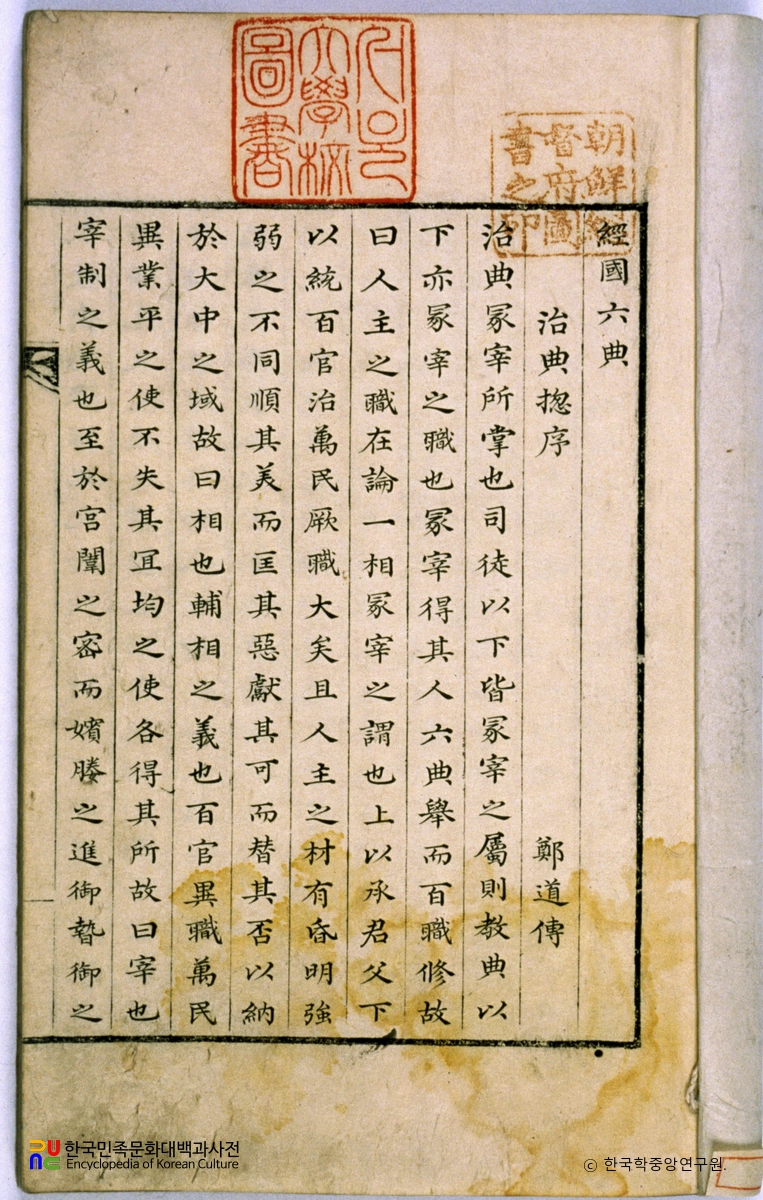 서울大學校圖書
朝鮮總督府圖書之印
經國六典
治典揔序 鄭道傳
治典冢宰所掌也司徒以下皆冢宰之屬則教典以
下亦冢宰之職也冢宰得其人六典舉而百職修故
曰人主之職在論一相冢宰之謂也上以承君父下
以統百官治萬民厥職大矣且人主之材有昏明強
弱之不同順其美而匡其惡獻其可而替其否以納
於大中之域故曰相也輔相之義也百官異職萬民
異業平之使不失其冝均之使各得其所故曰宰也
宰制之義也至於宮闈之密而嬪媵之進御暬御之
한국민족문화대백과사전
Encyclopedia of Korean Culture
ⓒ 한국학중앙연구원.